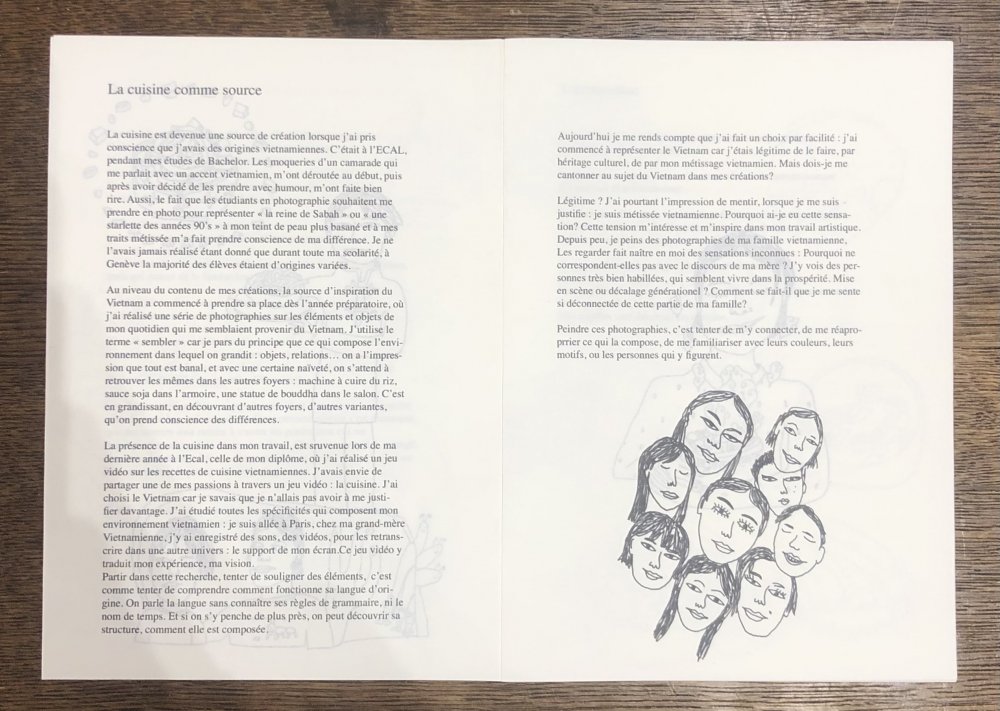 La cuisine comme source
La cuisine est devenue une source de création lorsque j'ai pris
conscience que j'avais des origines vietnamiennes. C'était à l'ECAL,
pendant mes études de Bachelor. Les moqueries d'un camarade qui
me parlait avec un accent vietnamien, m'ont déroutée au début, puis
après avoir décidé de les prendre avec humour, m'ont faite bien
rire. Aussi, le fait que les étudiants en photographie souhaitent me
prendre en photo pour représenter « la reine de Sabah » ou « une
starlette des années 90's » à mon teint de peau plus basané et à mes
traits métissée m'a fait prendre conscience de ma différence. Je ne
l'avais jamais réalisé étant donné que durant toute ma scolarité, à
Genève la majorité des élèves étaient d'origines variées.
Au niveau du contenu de mes créations, la source d'inspiration du
Vietnam a commencé à prendre sa place dès l'année préparatoire, où
j'ai réalisé une série de photographies sur les éléments et objets de
mon quotidien qui me semblaient provenir du Vietnam. J'utilise le
terme « sembler » car je pars du principe que ce qui compose l'envi-
ronnement dans lequel on grandit : objets, relations… on a l'impres-
sion que tout est banal, et avec une certaine naïveté, on s'attend à
retrouver les mêmes dans les autres foyers : machine à cuire du riz,
sauce soja dans l'armoire, une statue de bouddha dans le salon. C'est
en grandissant, en découvrant d'autres foyers, d'autres variantes,
qu'on prend conscience des différences.
La présence de la cuisine dans mon travail, est sruvenue lors de ma
dernière année à l'Ecal, celle de mon diplôme, où j'ai réalisé un jeu
vidéo sur les recettes de cuisine vietnamiennes. J'avais envie de
partager une de mes passions à travers un jeu vidéo : la cuisine. J'ai
choisi le Vietnam car je savais que je n'allais pas avoir à me justi-
fier davantage. J'ai étudié toutes les spécificités qui composent mon
environnement vietnamien : je suis allée à Paris, chez ma grand-mère
Vietnamienne, j'y ai enregistré des sons, des vidéos, pour les retrans-
crire dans une autre univers : le support de mon écran.Ce jeu vidéo y
traduit mon expérience, ma vision.
Partir dans cette recherche, tenter de souligner des éléments, c'est
comme tenter de comprendre comment fonctionne sa langue d'ori-
gine. On parle la langue sans connaître ses règles de grammaire, ni le
nom de temps. Et si on s'y penche de plus près, on peut découvrir sa
structure, comment elle est composée.
Aujourd'hui je me rends compte que j'ai fait un choix par facilité : j'ai
commencé à représenter le Vietnam car j'étais légitime de le faire, par
héritage culturel, de par mon métissage vietnamien. Mais dois-je me
cantonner au sujet du Vietnam dans mes créations?
Légitime ? J'ai pourtant l'impression de mentir, lorsque je me suis
justifie : je suis métissée vietnamienne. Pourquoi ai-je eu cette sensa-
tion? Cette tension m'intéresse et m'inspire dans mon travail artistique.
Depuis peu, je peins des photographies de ma famille vietnamienne,
Les regarder fait naître en moi des sensations inconnues : Pourquoi ne
correspondent-elles pas avec le discours de ma mère ? J'y vois des per-
sonnes très bien habillées, qui semblent vivre dans la prospérité. Mise
en scène ou décalage générationel ? Comment se fait-il que je me sente
si déconnectée de cette partie de ma famille?
Peindre ces photographies, c'est tenter de m'y connecter, de me réapro-
prrier ce qui la compose, de me familiariser avec leurs couleurs, leurs
motifs, ou les personnes qui y figurent.